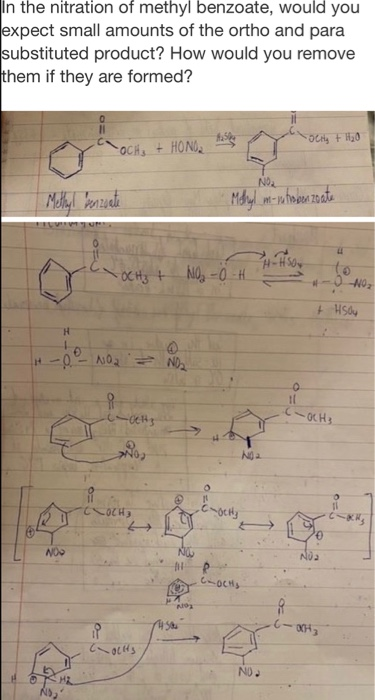 In the nitration of methyl benzoate, would you
expect small amounts of the ortho and para
substituted product? How would you remove
them if they are formed?
O
C OCH3 + HONO2 H2SO4 C OCH3 + H2O
NO2
Methyl benzoate Methyl m-nitrobenzoate
O
C OCH3 + NO2 - O - H H-HSO4 H - O - NO2
+ HSO4
H
H - O - NO2 ⇌ NO2
O
C-OCH3 → C-OCH3
NO2 NO2
O
C OCH3 ↔ C OCH3 ↔ C-OCH3
NO2 NO2 NO2
C-OCH3
NO2
HSO4
C OCH3 → C-OCH3
NO2 NO2